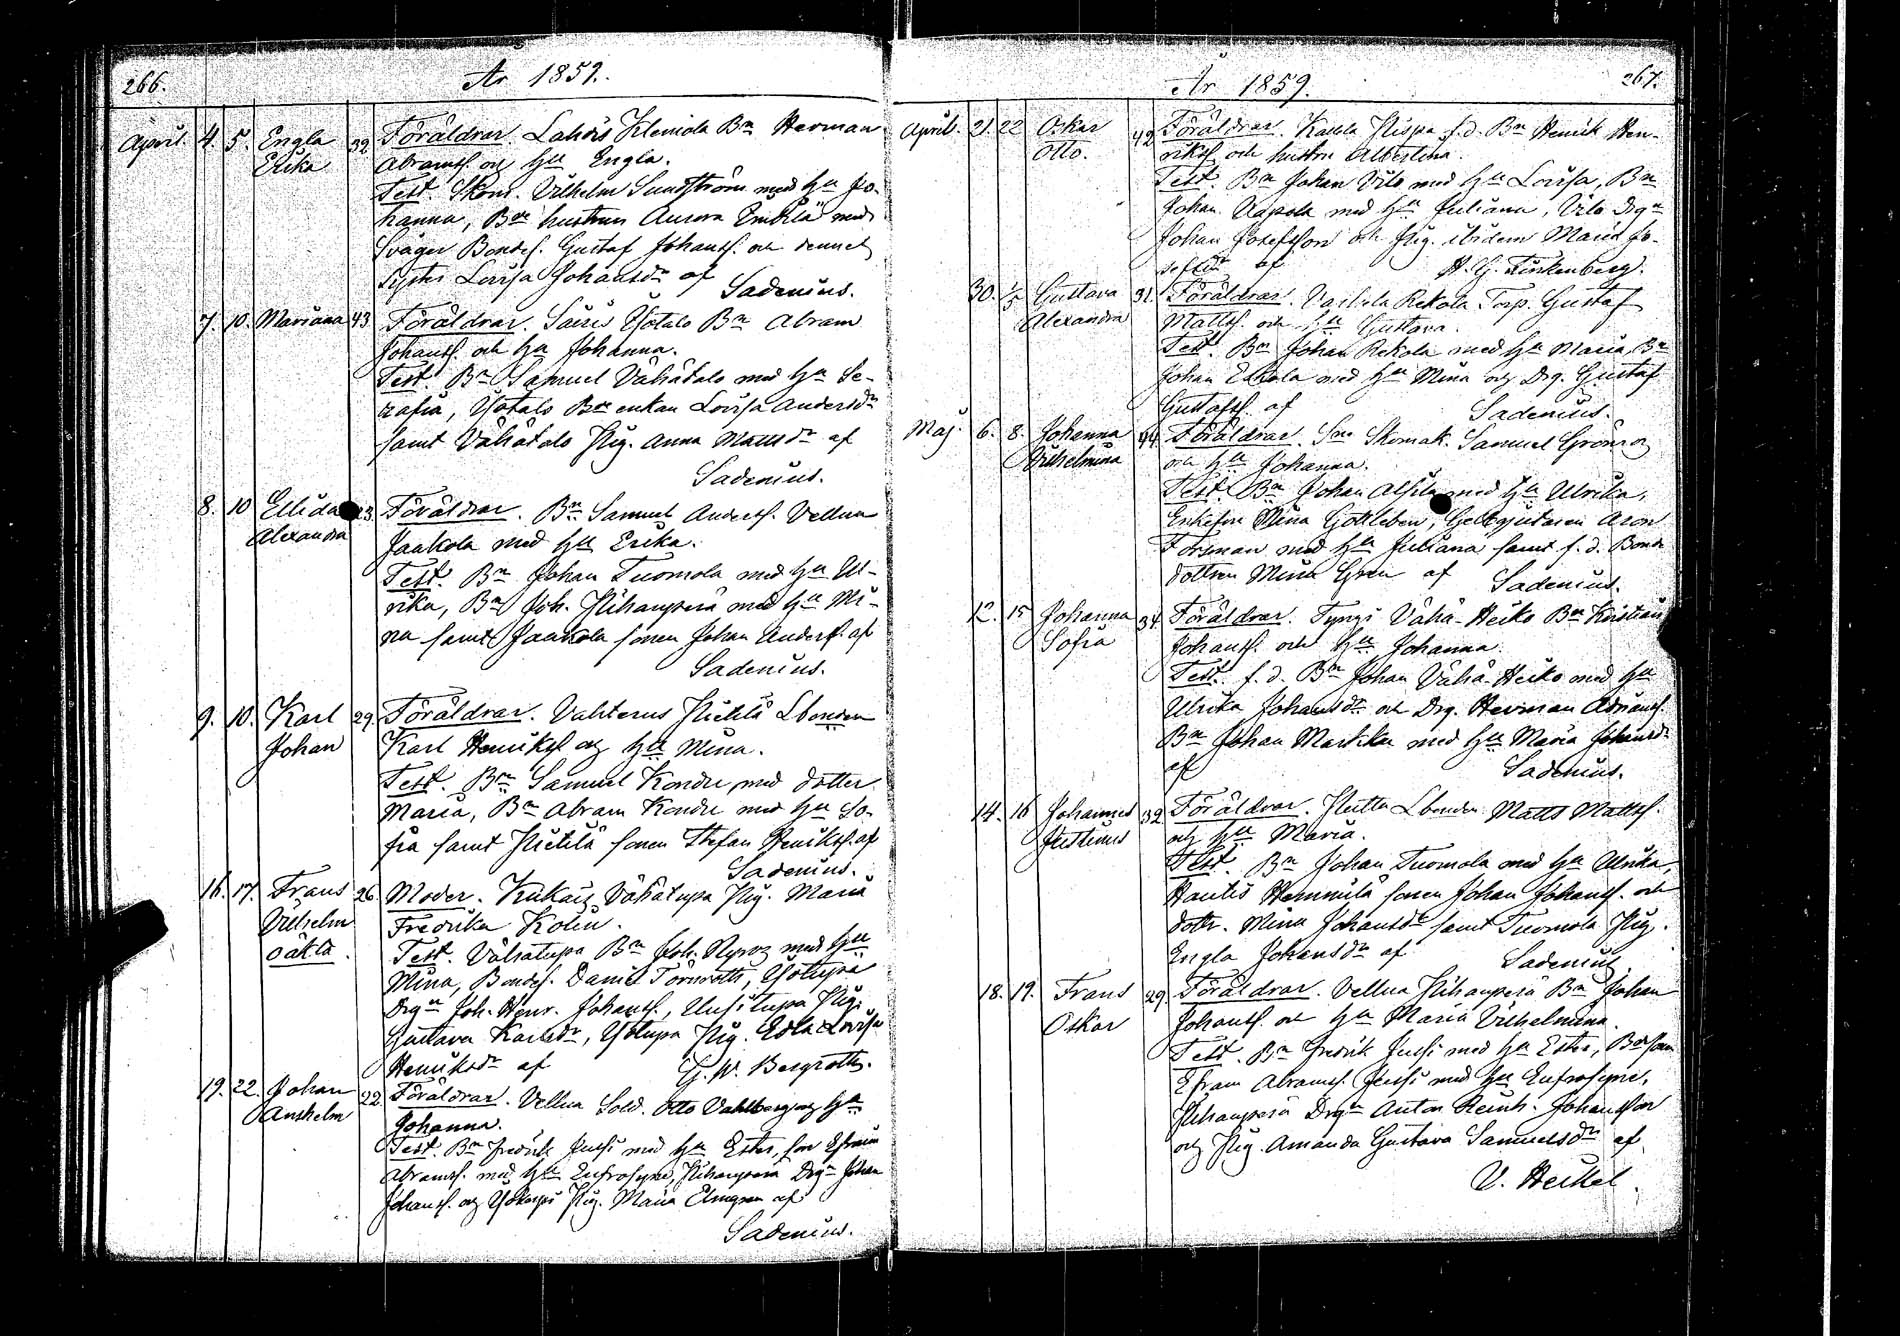 266.
År 1859.
April. 4. 5. Engla 32 Föräldrar. Lahdis Klemola Bn Herman
Erika Abramsf. och hu Engla.
Test. Skom. Vilhelm Sundström med hu Jo-
hanna, Bde hustrun Aurora Eurilä med
Svåger Bondes. Gustaf Johansf. och dennes
syster Lovisa Johansdr af
Sadenius.
7. 10. Mariana 43 Föräldrar. Säiris Ylötalo Bn Abram
Johansf. och hu Johanna.
Test. Bn Samuel Vähätalo med hu Se-
rafia, Ylötalo Bde enkan Lovisa Andersdr
samt Vähätalo Pig. Anna Mattsdr af
Sadenius.
8. 10 Ellida 23 Föräldrar. Bn Samuel Andersf. Vellua
Alexandra Jaakola med hu Erika.
Test. Bn Johan Tuomola med hu Ul-
rika, Bn Joh. Pihanperä med hu Mi-
na samt Jaakola sonen Johan Andersf. af
Sadenius.
9. 10. Karl 29. Föräldrar. Vahterus Pietilä Lbonden
Johan Karl Henriksf. och hu Mina.
Test. Bn Samuel Kondru med dotter
Maria, Bn Abram Kondru med hu So-
fia samt Pietilä sonen Stefan Henriksf. af
Sadenius.
16. 17. Frans 26. Moder. Kukaiz Vähätupa Pig. Maria
Vilhelm Fredrika Kolin.
oäkta. Test. Vähätupa Bn Joh. Nyroz med hu
Mina, Bondes. Daniel Törnroth, Ylötupa
Drgn Joh. Henr. Johansf., Uusitupa Pig.
Gustava Karlsdr, Ylötupa Pig. Edla Lovisa
Henriksdr af G. W. Bergroth.
19. 22. Johan 22. Föräldrar. Vellua Sold. Otto Vahlberg och hu
Anshelm Johanna.
Test. Bn Fredrik Jussi med hu Ester, son Efraim
Abramsf. med hu Eufrosyne, Pihanperä Drgn Johan
Johansf. och Pig. Maria Elmgren af
Sadenius.
År 1859.
267.
April. 21. 22 Oskar 42 Föräldrar. Kaukola Pispa f.d. Bn Henrik Hen-
Otto. riksf. och hustru Albertina.
Test. Bn Johan Vilo med hu Lovisa, Bn
Johan Uapola med hu Juliana, Vilo Drgn
Johan Josefsson och Pig. ibidem Maria Jo-
sefsdr af H. G. Finkenberg.
30. 1/5 Gustava 31. Föräldrar. Vaskola Rekola Torp. Gustaf
Alexandra Mattsf. och hu Gustava.
Test. Bn Johan Rekola med hu Maria, Bn
Johan Erkola med hu Mina och Drg. Gustaf
Gustafsf. af Sadenius.
Maj. 6. 8. Johanna 44. Föräldrar. Sn Skomak. Samuel Grönroz
Vilhelmina och hu Johanna.
Test. Bn Johan Alsila med hu Ulrika,
Enkefru Mina Gottleben, Gelbgjutaren Aron
Forsman med hu Juliana samt f. d. Bonde
dottren Mina Gren af Sadenius.
12. 15 Johanna 34. Föräldrar. Tyngi Vähä-Heiko Bn Kristian
Sofia Johansf. och hu Johanna.
Test. f. d. Bn Johan Vähä-Heiko med hu
Ulrika Johansdr och Drg. Herman Adriansf.
Bn Johan Markku med hu Maria Johansdr
af Sadenius.
14. 16 Johannes 32 Föräldrar. Pietta Lbonden Matts Mattsf.
Justinus och hu Maria.
Test. Bn Johan Tuomola med hu Ulrika,
Hautis Hemmilä sonen Johan Johansf. och
dottr. Mina Johansdr samt Tuomola Pig.
Engla Johansdr af Sadenius
18. 19. Frans 29. Föräldrar. Vellua Pihanperä Bn Johan
Oskar Johansf. och hu Maria Vilhelmina.
Test. Bn Fredrik Jussi med hu Ester, Bondesson
Efram Abramsf. Jussi med hu Eufrosyne,
Pihanperä Drgn Anton Reinh. Johansson
och Pig. Amanda Gustava Samuelsdr af
V. Heikel.